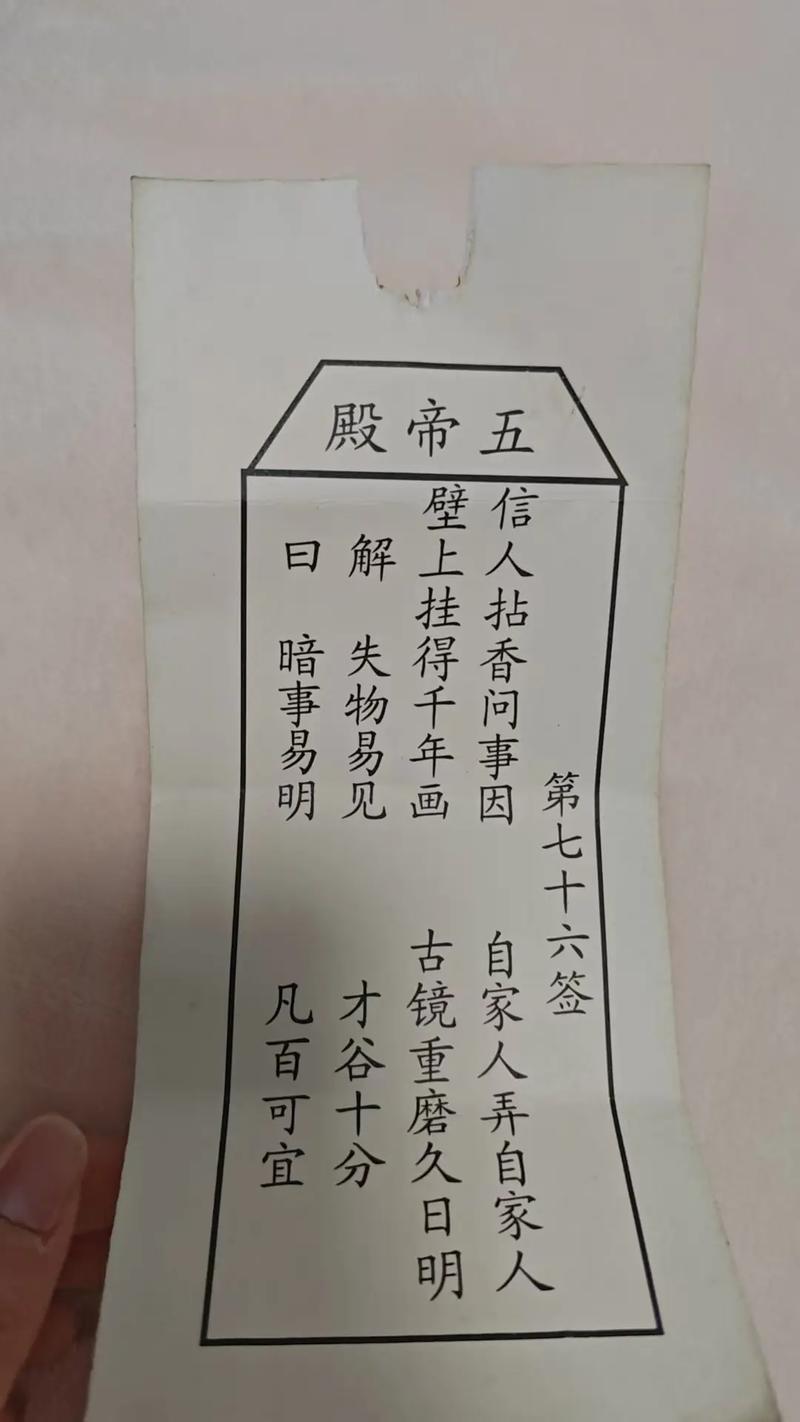 五帝殿
第七十六签
信人拈香问事因　自家人弄自家人
壁上挂得千年画　古镜重磨久日明
解　失物易见　才谷十分
曰　暗事易明　凡百可宜